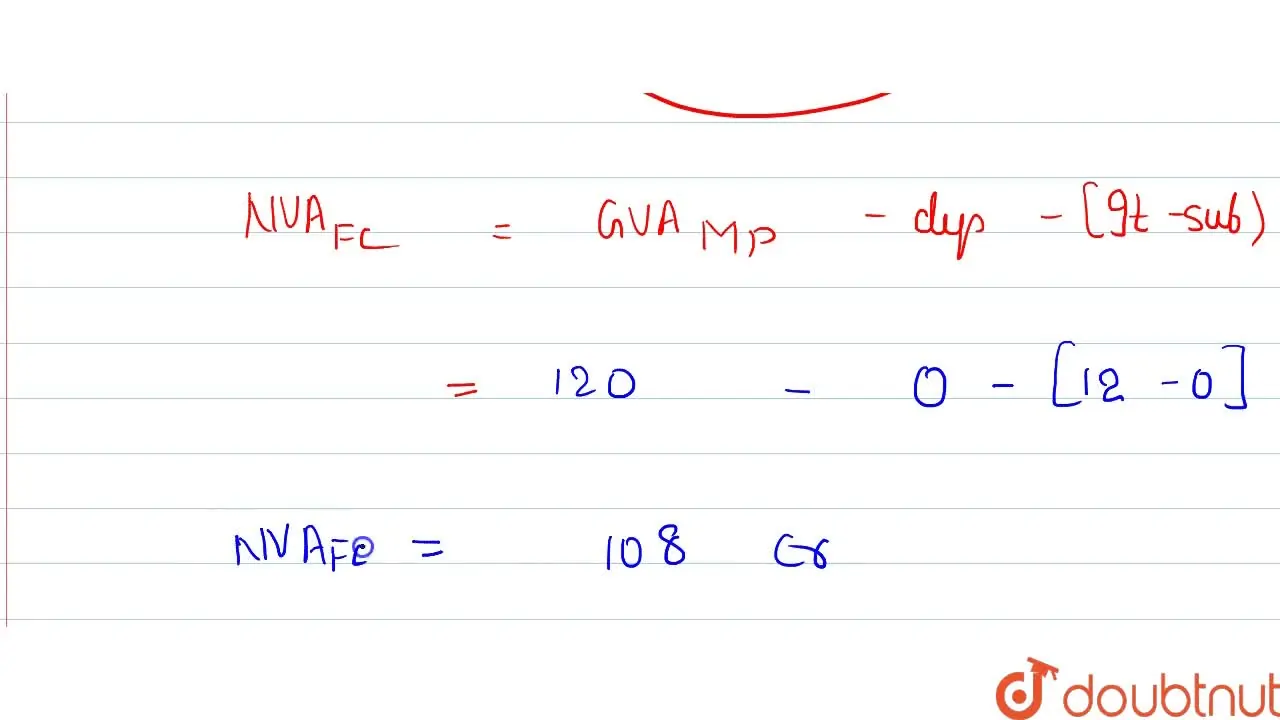 NVA FC = GVA MP - dep - [It - sub)
= 120 - 0 - [12 - 0]
NVA FC = 108 Cr
doubtnut